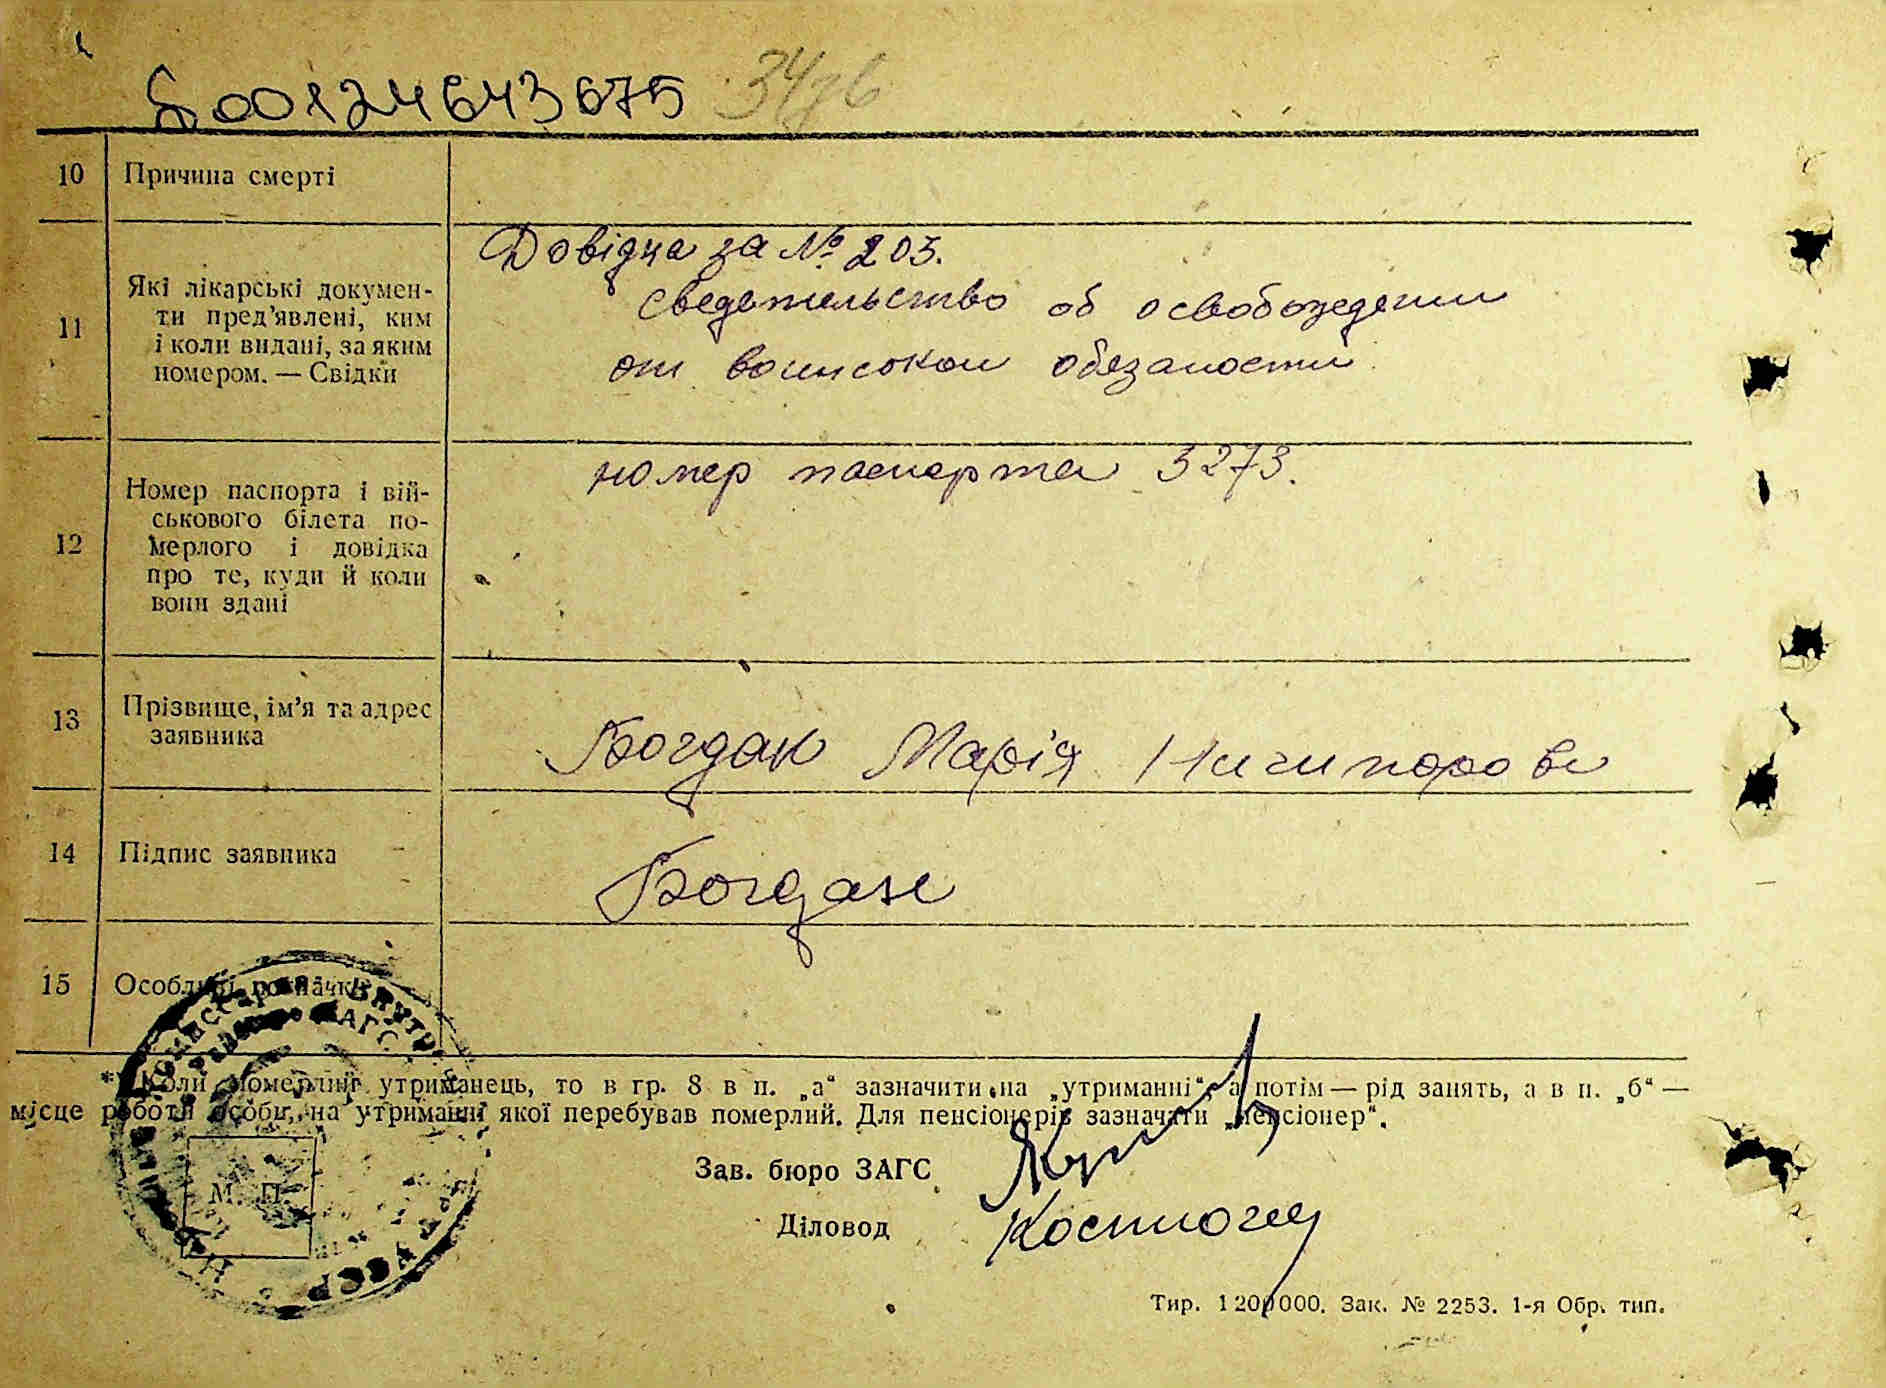 00124643675
10 Причина смерті
Довідка за № 203.
11 Які лікарські докумен-
ти пред'явлені, ким
і коли видані, за яким
номером. — Свідки
сведетельство об освобождении
от воинской обязаности
12 Номер паспорта і вій-
ськового білета по-
мерлого і довідка
про те, куди й коли
вони здані
номер паспорта 3273.
13 Прізвище, ім'я та адрес
заявника
Богдан Марія Ничипоровн
14 Підпис заявника
Богдан
15 Особливі
* Коли померлий утриманець, то в гр. 8 в п. „а“ зазначити „на „утриманні“, а потім — рід занять, а в п. „б“ —
місце роботи особи, на утриманні якої перебував померлий. Для пенсіонерів зазначати „пенсіонер“.
Зав. бюро ЗАГС
Діловод
М. П.
УССР
Тир. 1200000. Зак. № 2253. 1-я Обр. тип.